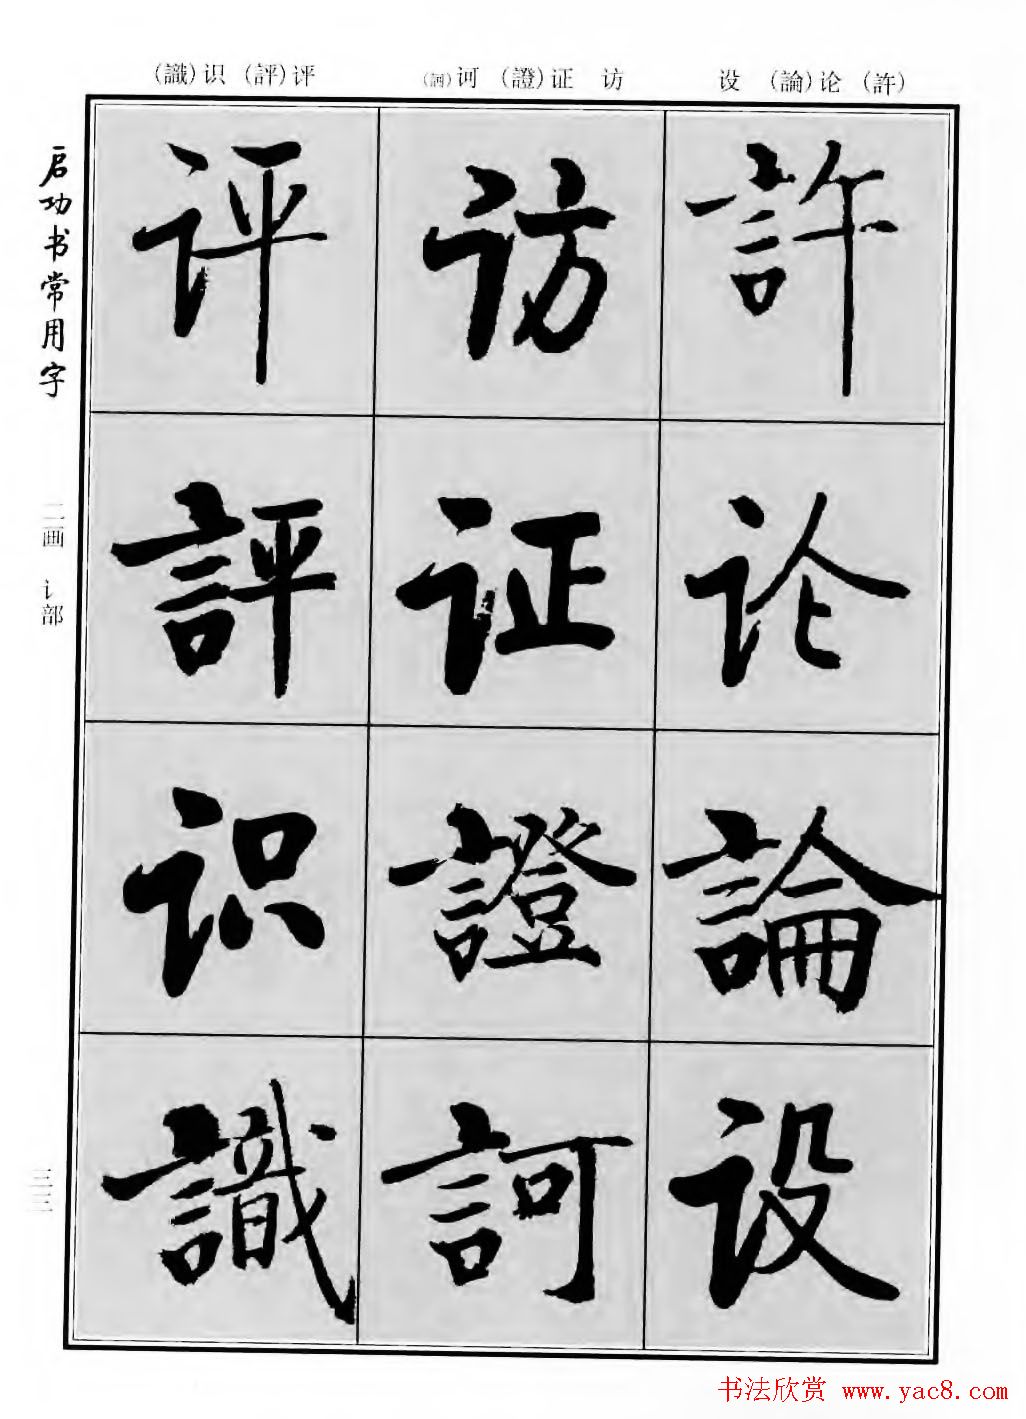 (許) 论(論) 设
访 证(證) 诃(訶)
评(評) 识(識)
許
论
論
设
访
证
證
訶
评
評
识
識
启功书常用字
二画 讠部
三三
书法欣赏 www.yac8.com